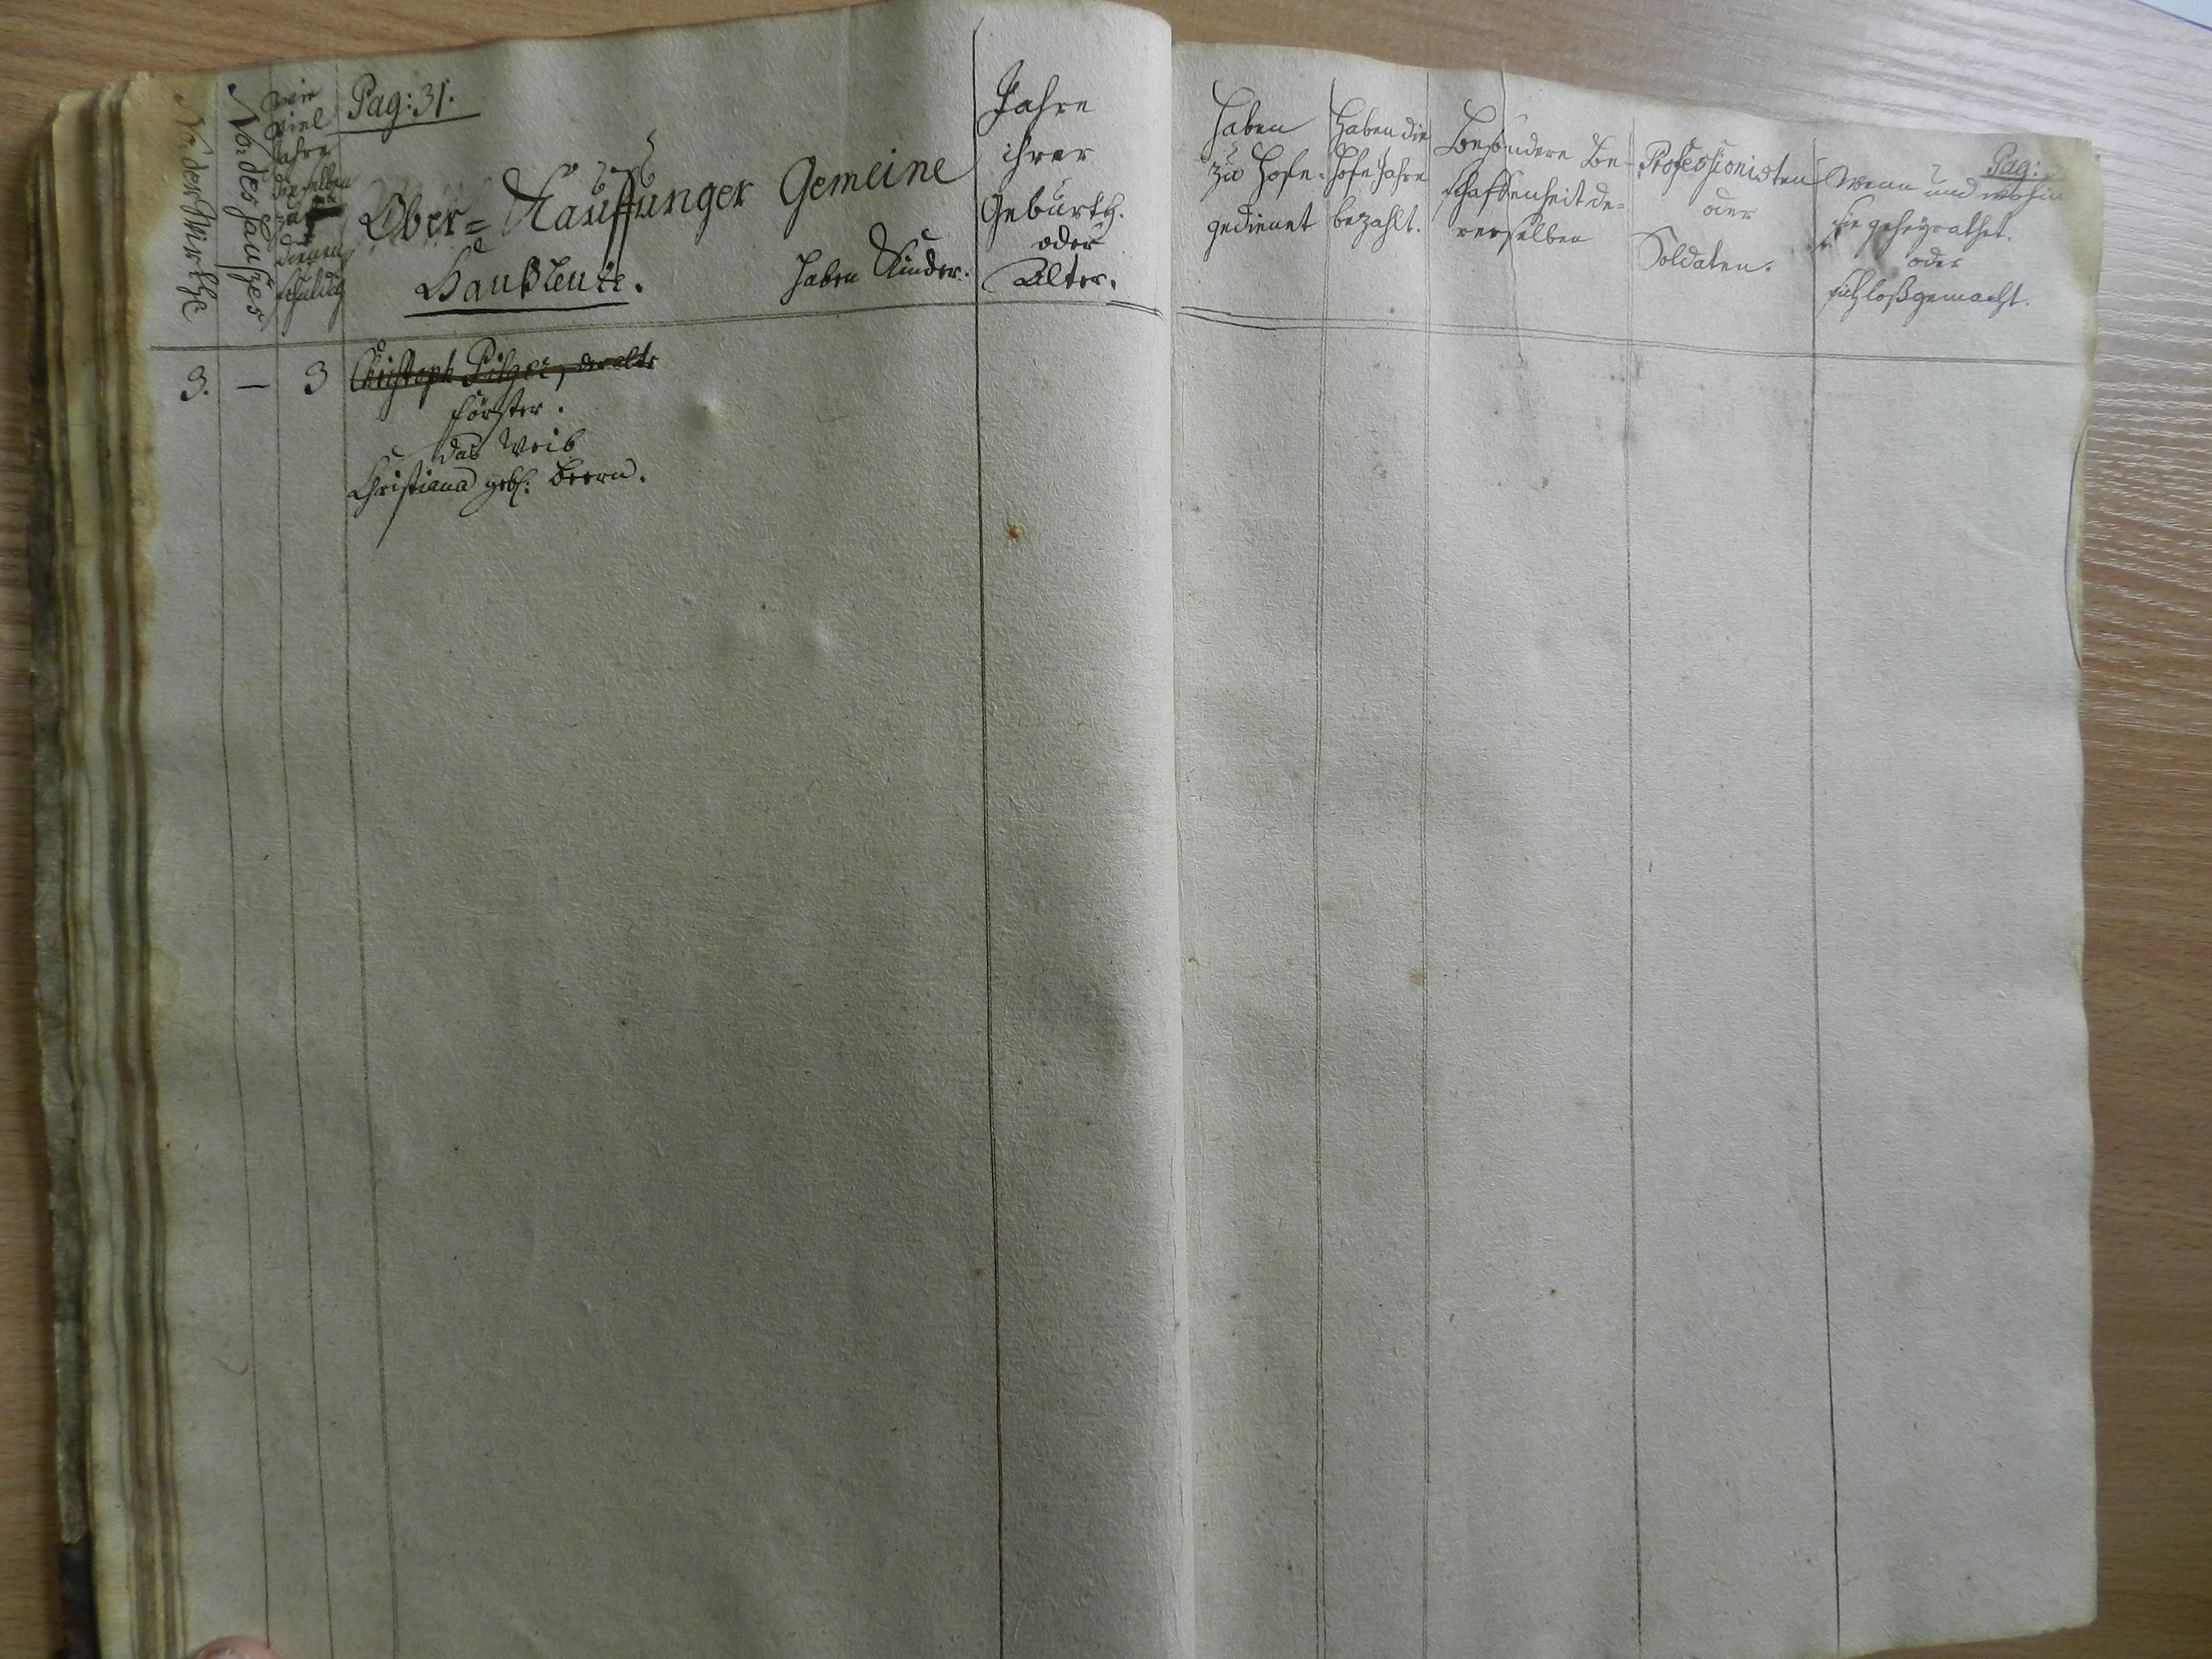 Pag: 31.
No. der Wirthe
No: des Hauses
wie
viel
Jahre
dieselben
zu
dienen
schuldig
Ober= Kauffunger Gemeine
Haußleute.
haben Kinder.
Jahre
ihrer
Geburth.
oder
Alter.
haben
zu Hofe
gedienet
haben die
Hofe Jahre
bezahlt.
Besondere Be-
schaffenheit de=
rerselben
Professionisten
oder
Soldaten.
Pag:
Wenn und wohin
sie geheyrathet.
oder
sich loßgemacht.
3. — 3 Christoph Pilger, der alte
Förster.
das Weib
Christiana geb: